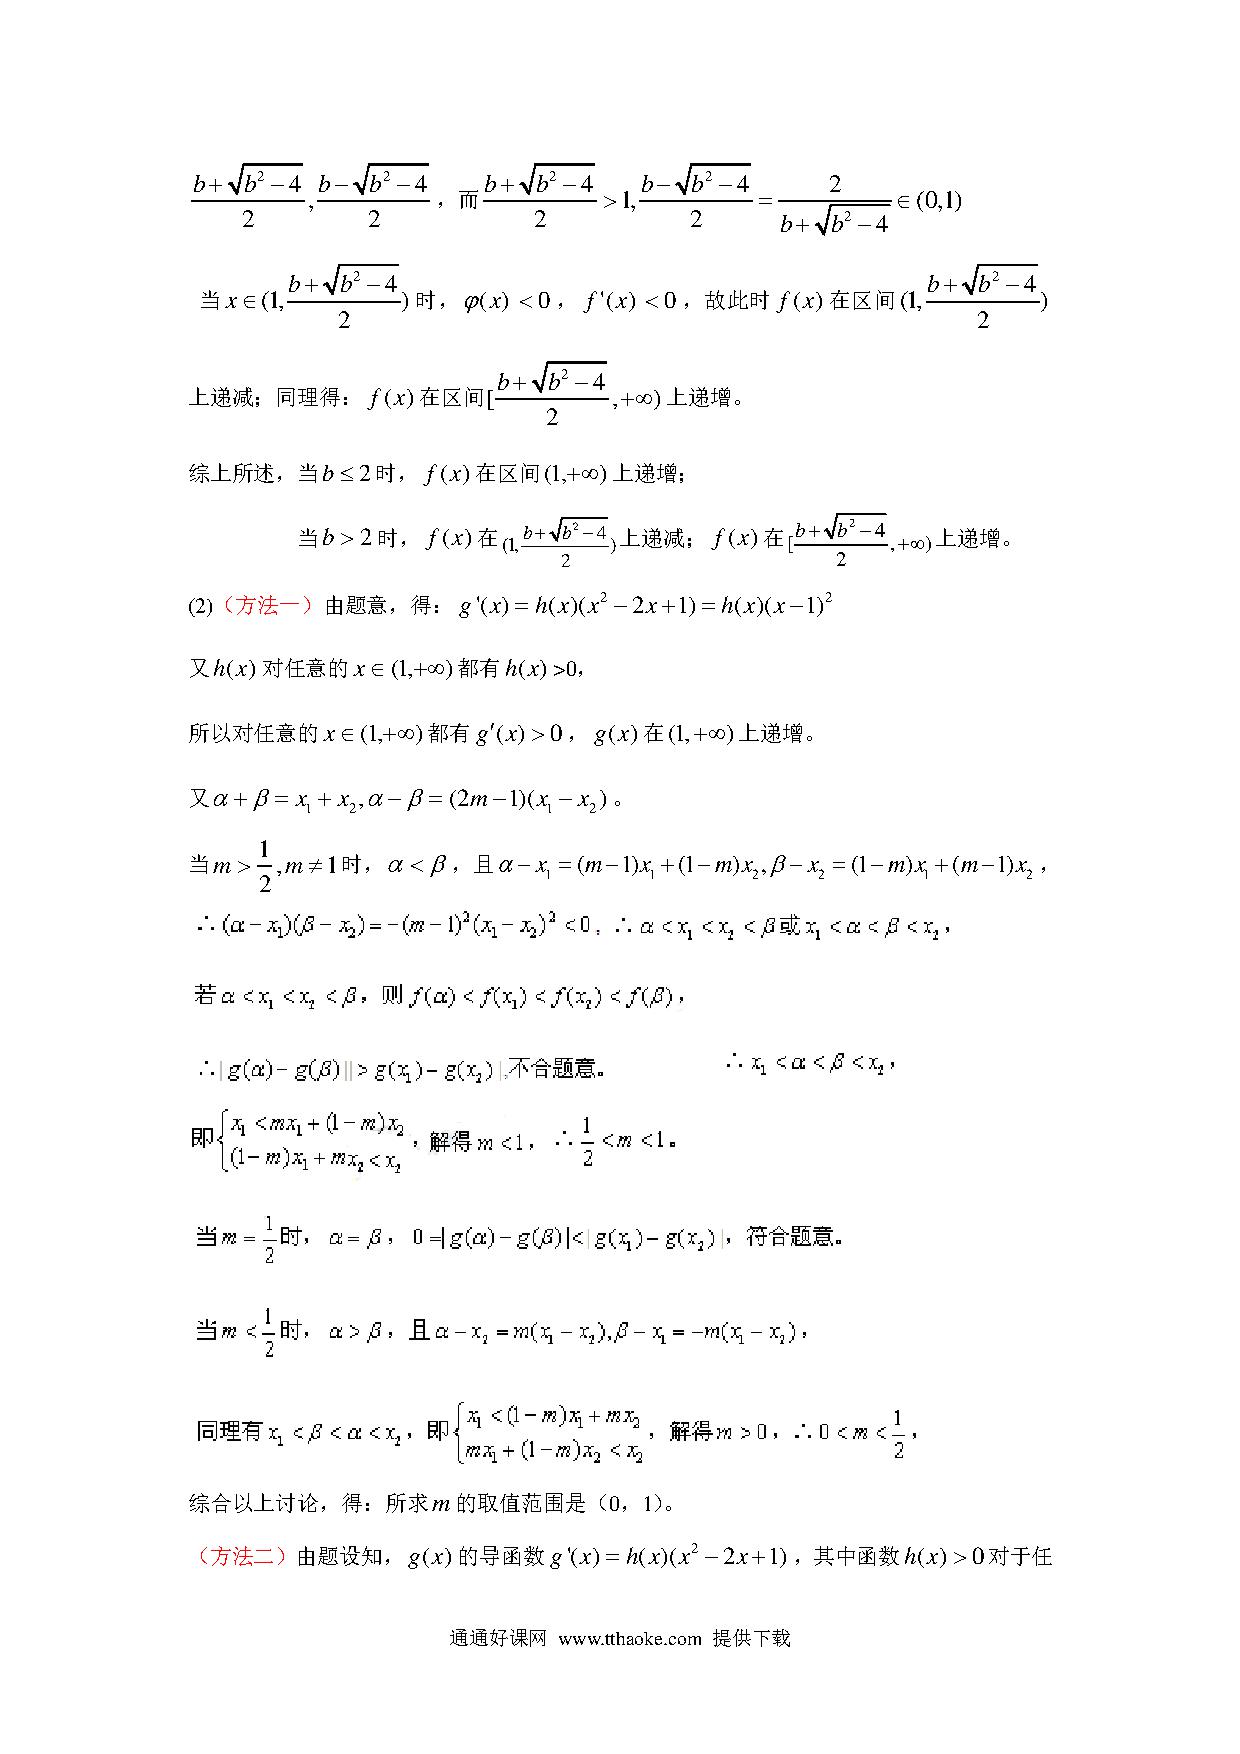 (b+√(b²−4))/2, (b−√(b²−4))/2，而 (b+√(b²−4))/2 >1, (b−√(b²−4))/2 = 2/(b+√(b²−4)) ∈(0,1)
当x∈(1, (b+√(b²−4))/2)时，φ(x) <0，f'(x) <0，故此时f(x)在区间(1, (b+√(b²−4))/2)
上递减；同理得：f(x)在区间[(b+√(b²−4))/2 ,+∞)上递增。
综上所述，当b≤2时，f(x)在区间(1,+∞)上递增；
当b>2时，f(x)在(1, (b+√(b²−4))/2)上递减；f(x)在[(b+√(b²−4))/2 ,+∞)上递增。
(2)（方法一）由题意，得：g'(x)=h(x)(x²−2x+1)=h(x)(x−1)²
又h(x)对任意的x∈(1,+∞)都有h(x)>0，
所以对任意的x∈(1,+∞)都有g′(x)>0，g(x)在(1,+∞)上递增。
又α+β=x₁+x₂,α−β=(2m−1)(x₁−x₂)。
当m>1/2,m≠1时，α<β，且α−x₁=(m−1)x₁+(1−m)x₂,β−x₂=(1−m)x₁+(m−1)x₂，
∴(α−x₁)(β−x₂)=−(m−1)²(x₁−x₂)²<0；∴α<x₁<x₂<β或x₁<α<β<x₂，
若α<x₁<x₂<β，则f(α)<f(x₁)<f(x₂)<f(β)，
∴|g(α)−g(β)||>g(x₁)−g(x₂)|,不合题意。 ∴x₁<α<β<x₂，
即{x₁<mx₁+(1−m)x₂
(1−m)x₁+mx₂<x₂，解得m<1，∴1/2<m<1。
当m=1/2时，α=β，0=|g(α)−g(β)|<|g(x₁)−g(x₂)|，符合题意。
当m<1/2时，α>β，且α−x₂=m(x₁−x₂),β−x₁=−m(x₁−x₂)，
同理有x₁<β<α<x₂，即{x₁<(1−m)x₁+mx₂
mx₁+(1−m)x₂<x₂，解得m>0，∴0<m<1/2，
综合以上讨论，得：所求m的取值范围是（0，1）。
（方法二）由题设知，g(x)的导函数g'(x)=h(x)(x²−2x+1)，其中函数h(x)>0对于任
通通好课网 www.tthaoke.com 提供下载